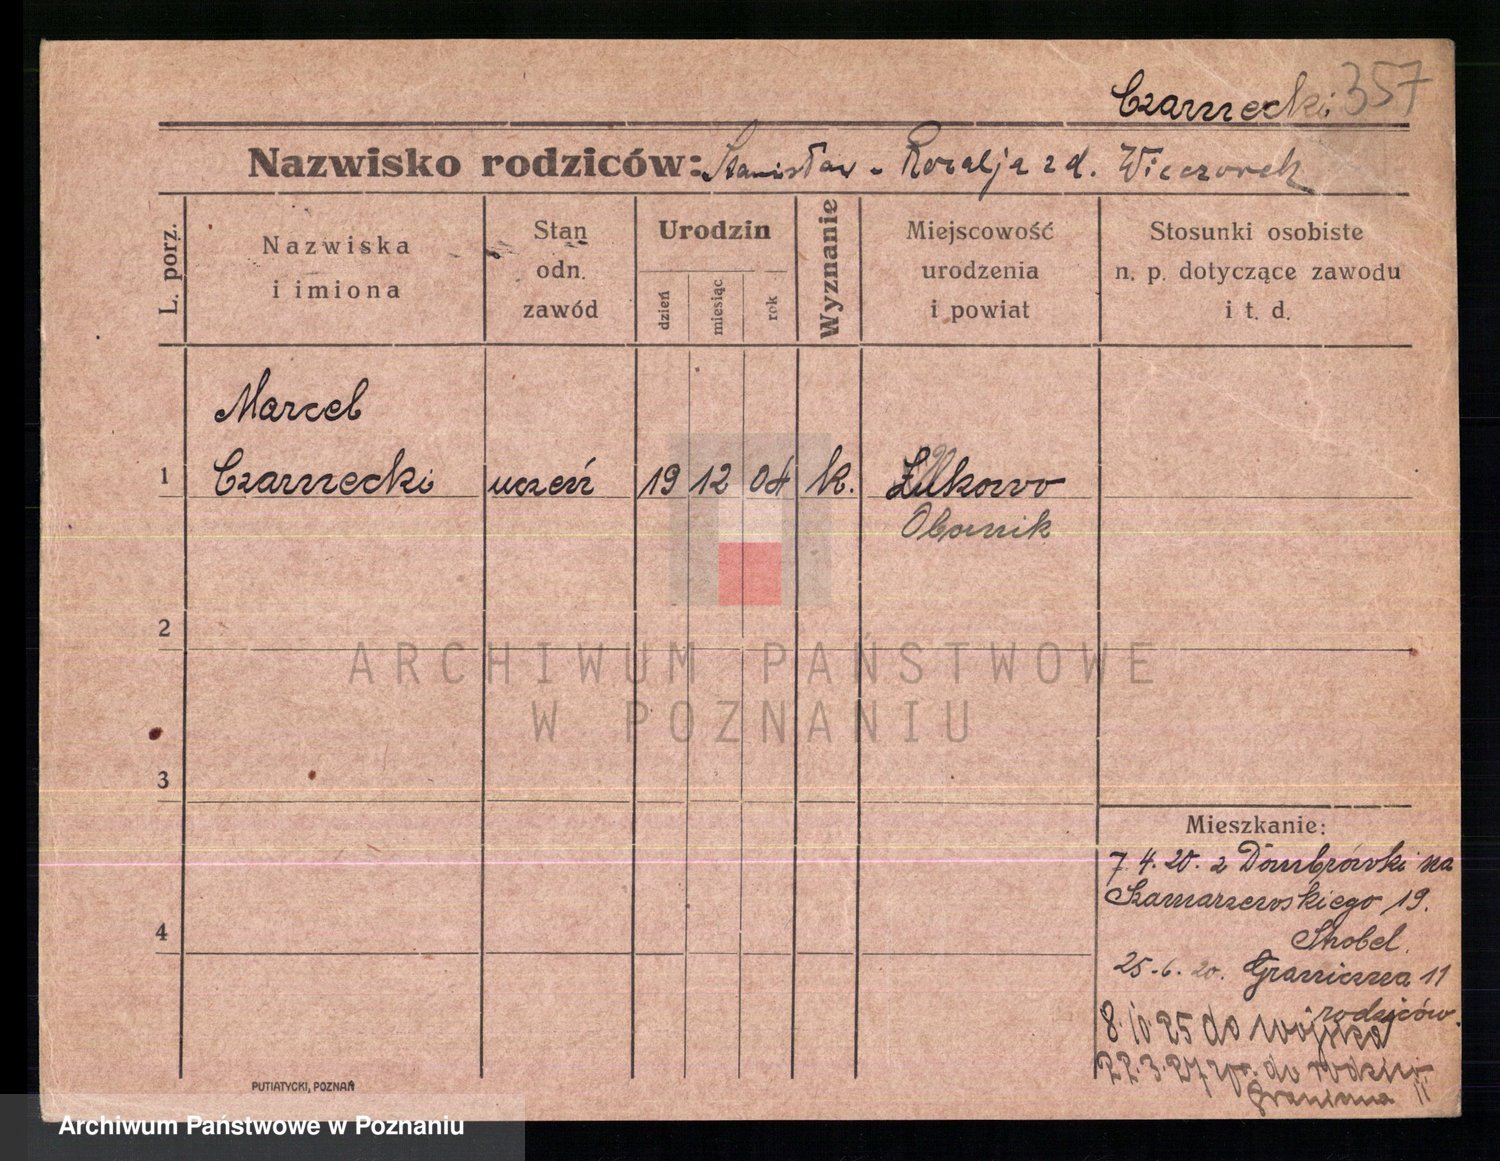 Czarnecki 357
Nazwisko rodziców: Stanisław - Rozalja z d. Wieczorek
L. porz.
Nazwiska
i imiona
Stan
odn.
zawód
Urodzin
dzień
miesiąc
rok
Wyznanie
Miejscowość
urodzenia
i powiat
Stosunki osobiste
n. p. dotyczące zawodu
i t. d.
Marcel
1 Czarnecki uczeń 19 12 04 k. Żukowo
Obornik
2
ARCHIWUM PAŃSTWOWE
W POZNANIU
3
Mieszkanie:
7.4.20. z Dombrówki na
Szamarzewskiego 19.
4
Strobel.
25.6.20. Graniczna 11
rodziców.
8.10.25 do wojska
22.3.27 do rodziców
Graniczna 11
PUTIATYCKI, POZNAŃ
Archiwum Państwowe w Poznaniu